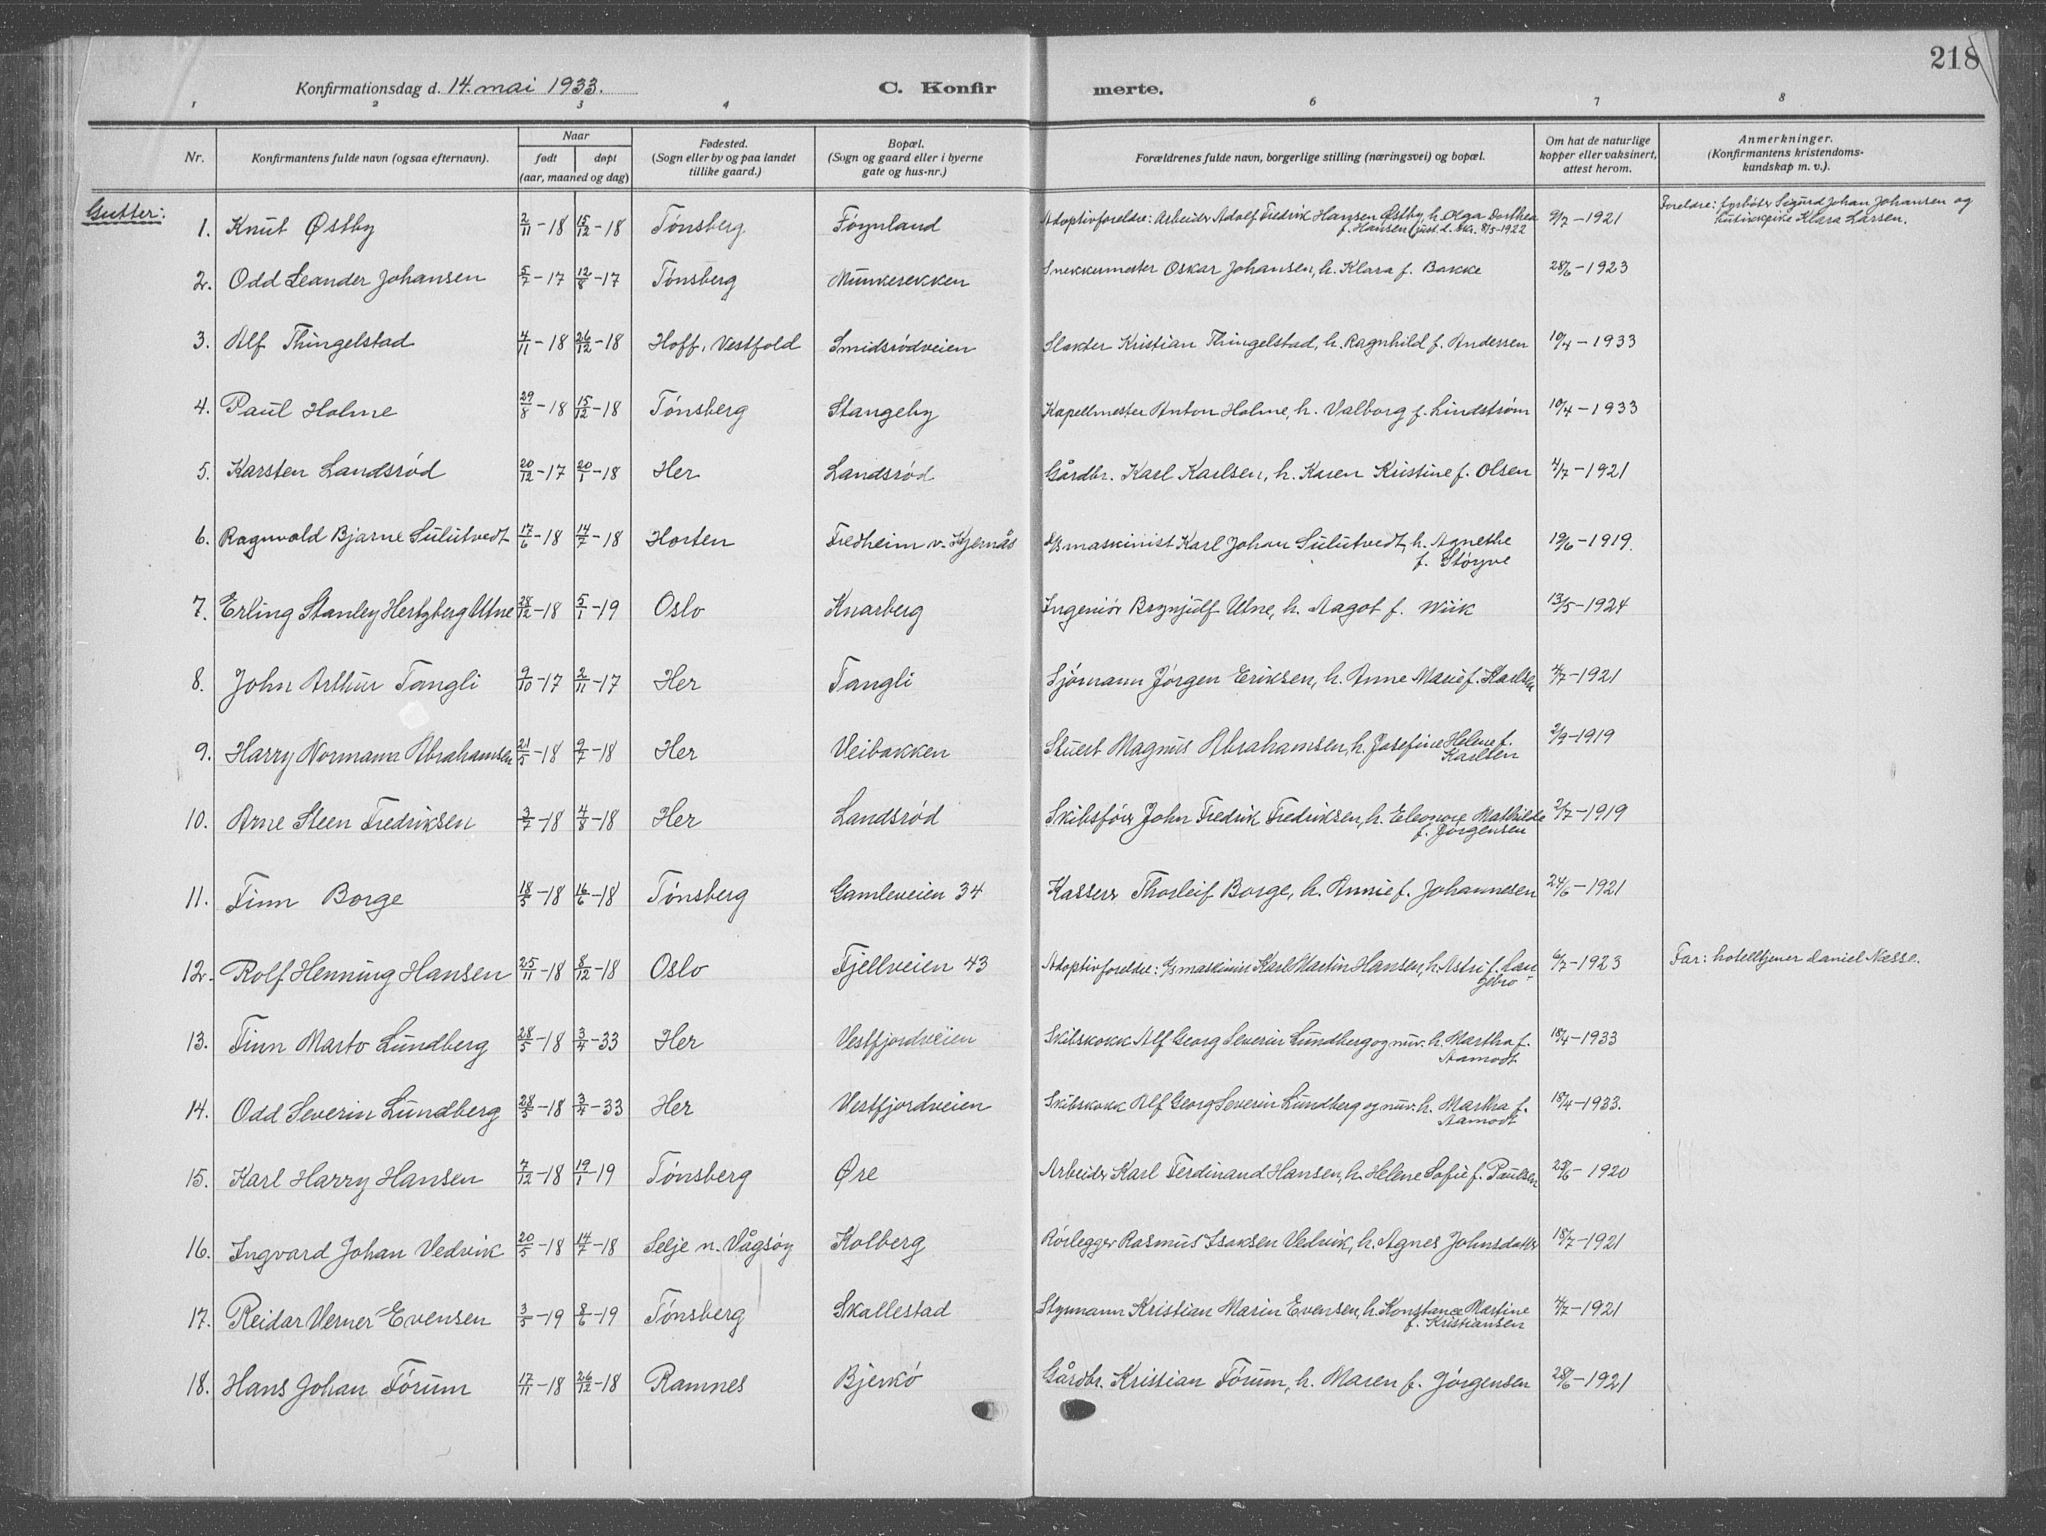 218
Konfirmationsdag d. 14. mai 1933.
C. Konfirmerte.
1 2 3 4 6 7 8
Nr. Konfirmantens fulde navn (ogsaa efternavn). Naar født døpt (aar, maaned og dag) Fødested. (Sogn eller by og paa landet tillike gaard.) Bopæl. (Sogn og gaard eller i byerne gate og hus-nr.) Forældrenes fulde navn, borgerlige stilling (næringsvei) og bopæl. Om hat de naturlige kopper eller vaksinert, attest herom. Anmerkninger. (Konfirmantens kristendoms- kundskap m. v.).
Gutter:
1. Knut Østby 2/11-18 15/12-18 Tønsberg Føynland Adoptivforeldre: Arbeider Adolf Fredrik Hansen Østby, h. Olga Dorthea f. Hansen (just.d. skr. 8/5-1922 9/7-1921 Foreldre: fyrbøter Sigurd Johan Johansen og Klara Larsen.
2. Odd Leander Johansen 5/7-17 12/8-17 Tønsberg Munkerekken Snekkermester Oskar Johansen, h. Klara f. Bakke 28/6-1923
3. Alf Thingelstad 4/11-18 26/12-18 Hoff, Vestfold Smidsrødveien Slakter Kristian Thingelstad, h. Ragnhild f. Andersen 10/4-1933
4. Paul Holme 29/8-18 15/12-18 Tønsberg Stangeby Kapellmester Anton Holme, h. Valborg f. Lindstrøm 10/4-1933
5. Karsten Landsrød 20/12-17 20/1-18 Her Landsrød Gårdbr. Karl Karlsen, h. Karen Kristine f. Olsen 4/7-1921
6. Ragnvald Bjarne Sulutvedt 17/6-18 14/7-18 Horten Fredheim v. Kjernås maskinist Karl Johan Sulutvedt, h. Agnethe f. Støyve 19/6-1919.
7. Erling Stanley Hertzberg Utne 28/12-18 5/1-19 Oslo Knarberg Ingeniør Brynjulf Utne, h. Aagot f. Wiik 13/5-1924
8. John Arthur Tangli 9/10-17 2/11-17 Her Tangli Sjømann Jørgen Eriksen, h. Anne Marie f. Karlsen 4/7-1921
9. Harry Normann Abrahamsen 21/5-18 9/7-18 Her Veibakken Stuert Magnus Abrahamsen, h. Josefine Helene f. Karlsen 2/9-1919
10. Arne Steen Fredriksen 3/7-18 4/8-18 Her Landsrød Skibsfører John Fredrik Fredriksen, h. Eleonore Mathilde f. Jørgensen 2/7-1919
11. Finn Borge 18/5-18 16/6-18 Tønsberg Gamleveien 34 Kasserer Thorleif Borge, h. Annie f. Johannesen 24/6-1921
12. Rolf Henning Hansen 25/11-18 8/12-18 Oslo Fjellveien 43 Adoptivforeldre: maskinist Karl Martin Hansen, h. Astri f. Langebro 6/7-1923 Far: hotelltjener Daniel Næsse.
13. Finn Marto Lundberg 28/5-18 3/4-33 Her Vestfjordveien Skibskokk Alf Georg Severin Lundberg og nuv. h. Martha f. Aamodt 18/4-1933
14. Odd Severin Lundberg 28/5-18 3/4-33 Her Vestfjordveien Skibskokk Alf Georg Severin Lundberg og nuv. h. Martha f. Aamodt 18/4-1933.
15. Karl Harry Hansen 7/12-18 19/1-19 Tønsberg Øre Arbeider Karl Ferdinand Hansen, h. Helene Sofie f. Paulsen 25/6-1920
16. Ingvard Johan Vedvik 20/5-18 14/7-18 Selje n. Vågsøy Kolberg Rørlegger Rasmus Isaksen Vedvik, h. Agnes Johnsdatter 18/7-1921
17. Reidar Verner Evensen 3/5-19 8/6-19 Tønsberg Skallestad Styrmann Kristian Marin Evensen, h. Konstance Martine f. Kristiansen 4/7-1921
18. Hans Johan Førum 17/11-18 26/12-18 Ramnes Bjerkø Gårdbr. Kristian Førum, h. Maren f. Jørgensen 28/6-1921